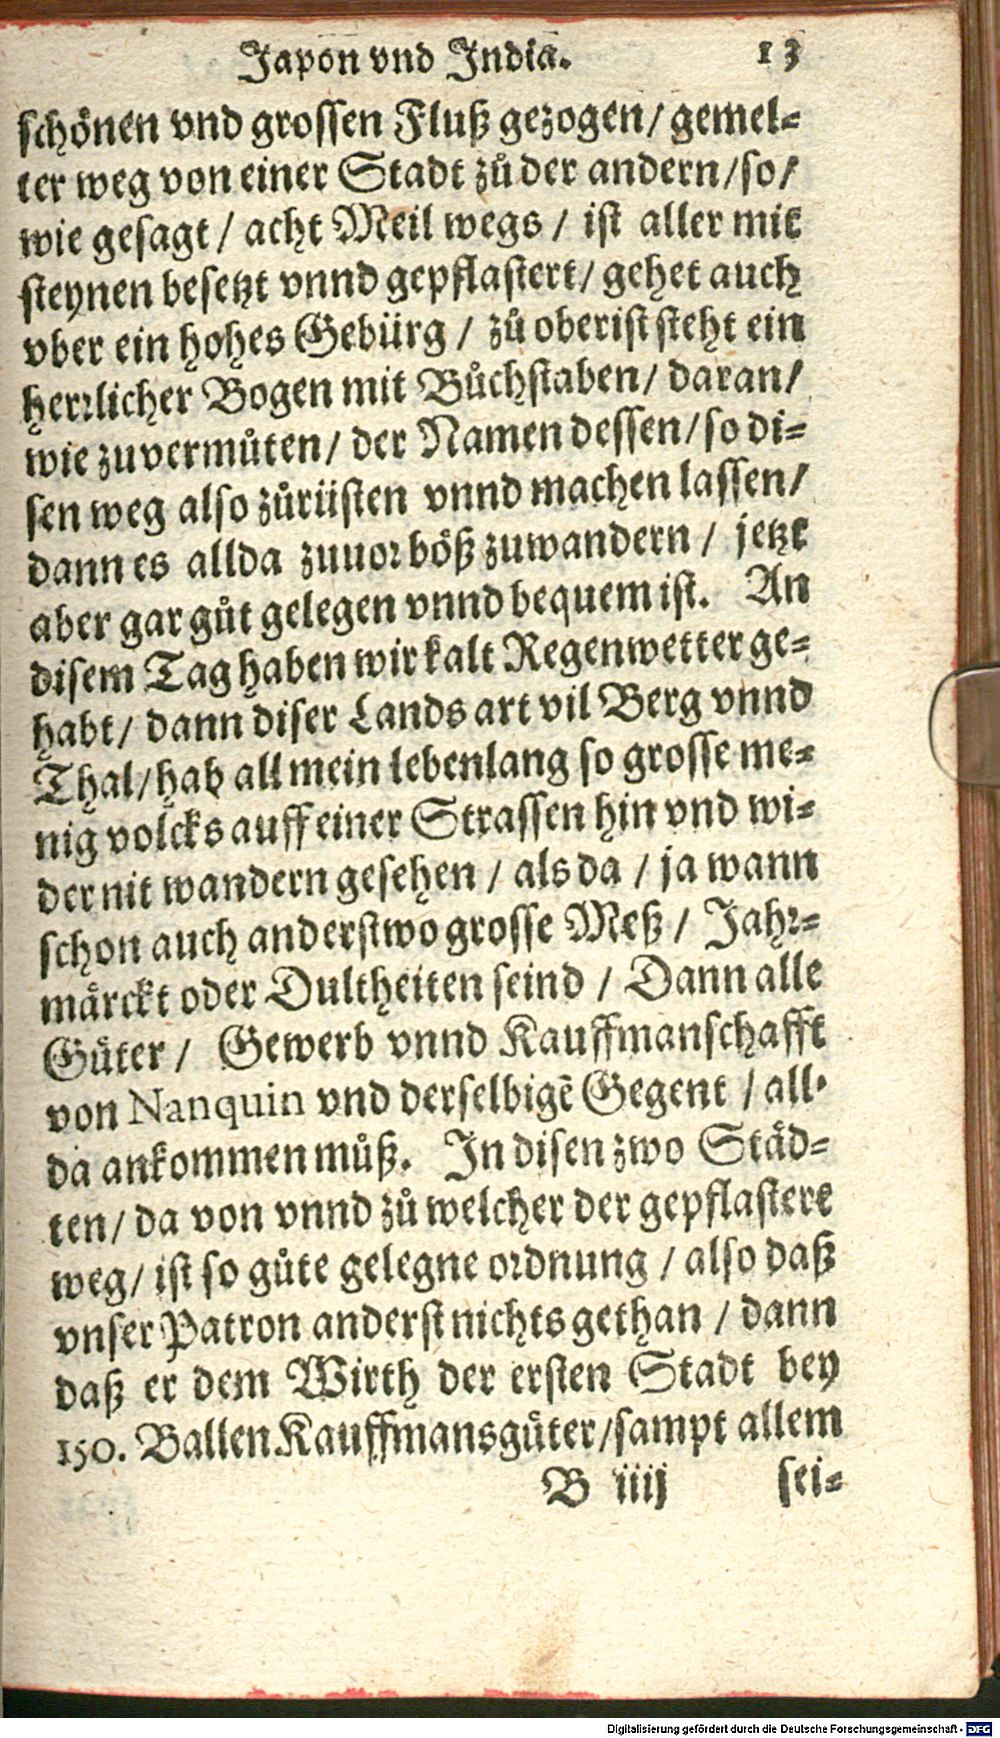 Japon vnd India. 13
schönen vnd grossen Fluß gezogen/ gemel-
ter weg von einer Stadt zů der andern/so/
wie gesagt/ acht Meil wegs/ ist aller mit
steynen besetzt vnnd gepflastert/ gehet auch
vber ein hohes Gebürg/ zů oberist steht ein
herrlicher Bogen mit Bůchstaben/ daran/
wie zuvermůten/ der Namen dessen/ so di-
sen weg also zůrüsten vnnd machen lassen/
dann es allda zuuor böß zuwandern/ jetzt
aber gar gůt gelegen vnnd bequem ist. An
disem Tag haben wir kalt Regenwetter ge-
habt/ dann diser Lands art vil Berg vnnd
Thal/ hab all mein lebenlang so grosse me-
nig volcks auff einer Strassen hin vnd wi-
der nit wandern gesehen/ als da/ ja wann
schon auch anderstwo grosse Meß/ Jahr-
märckt oder Dultheiten seind/ Dann alle
Gůter/ Gewerb vnnd Kauffmanschafft
von Nanquin vnd derselbigē Gegent/ all-
da ankommen můß. In disen zwo Städ-
ten/ da von vnnd zů welcher der gepflastert
weg/ ist so gůte gelegne ordnung/ also daß
vnser Patron anderst nichts gethan/ dann
daß er dem Wirth der ersten Stadt bey
150. Ballen Kauffmansgůter/sampt allem
B iiij sei-
Digitalisierung gefördert durch die Deutsche Forschungsgemeinschaft - DFG